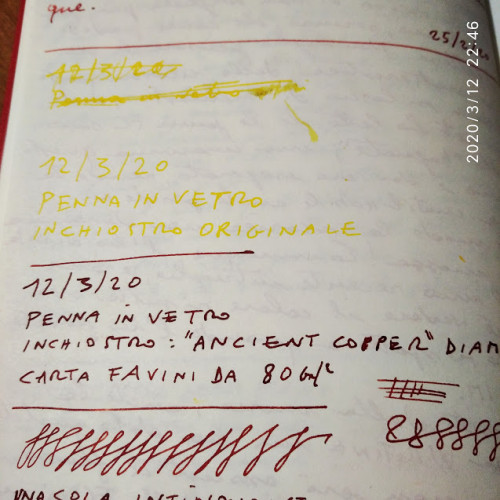 que.
25/2/
12/3/20
Penna in vetro
12/3/20
PENNA IN VETRO
INCHIOSTRO ORIGINALE
12/3/20
PENNA IN VETRO
INCHIOSTRO: "ANCIENT COPPER" DIAM
CARTA FAVINI DA 80 Gr/²
UNA SOLA
2020/3/12 22:46